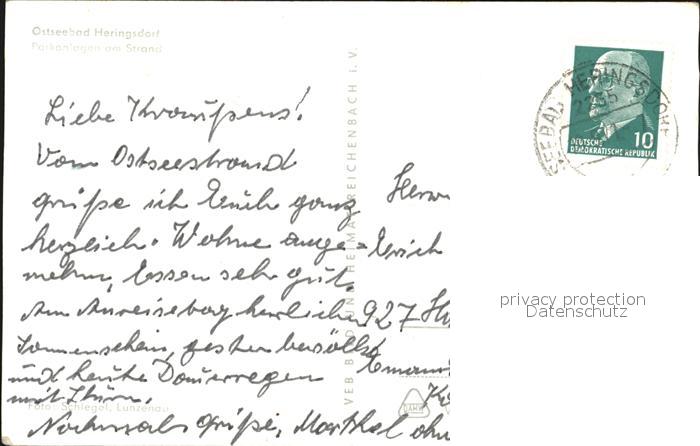 Ostseebad Heringsdorf
Parkanlagen am Strand
Liebe Kraußens!
Vom Ostseestrand
grüße ich Euch ganz
herzlich. Wohne ange-
nehm, Essen sehr gut.
Am Anreisetag herrlicher
Sonnenschein, gestern bewölkt
und heute Dauerregen
mit Sturm.
Nochmals Grüße,
VEB BILD UND HEIMAT REICHENBACH i. V.
Foto: Schlegel, Lunzenau
SEEBAD HERINGSDORF
2255
10
DEUTSCHE
DEMOKRATISCHE REPUBLIK
Herrn
Erich
927
privacy protection
Datenschutz